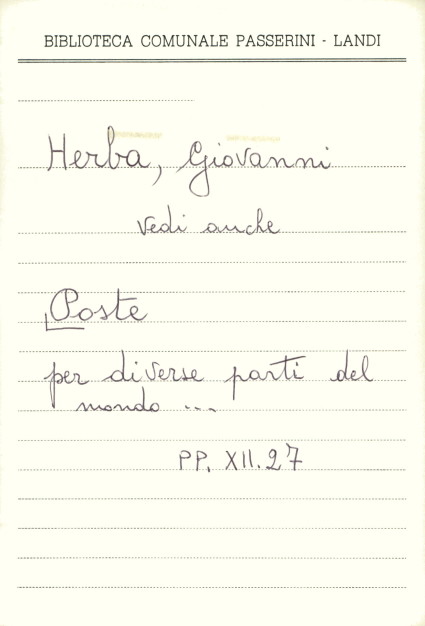 BIBLIOTECA COMUNALE PASSERINI - LANDI
Herba, Giovanni
vedi anche
Poste
per diverse parti del
mondo ...
PP. XII. 27